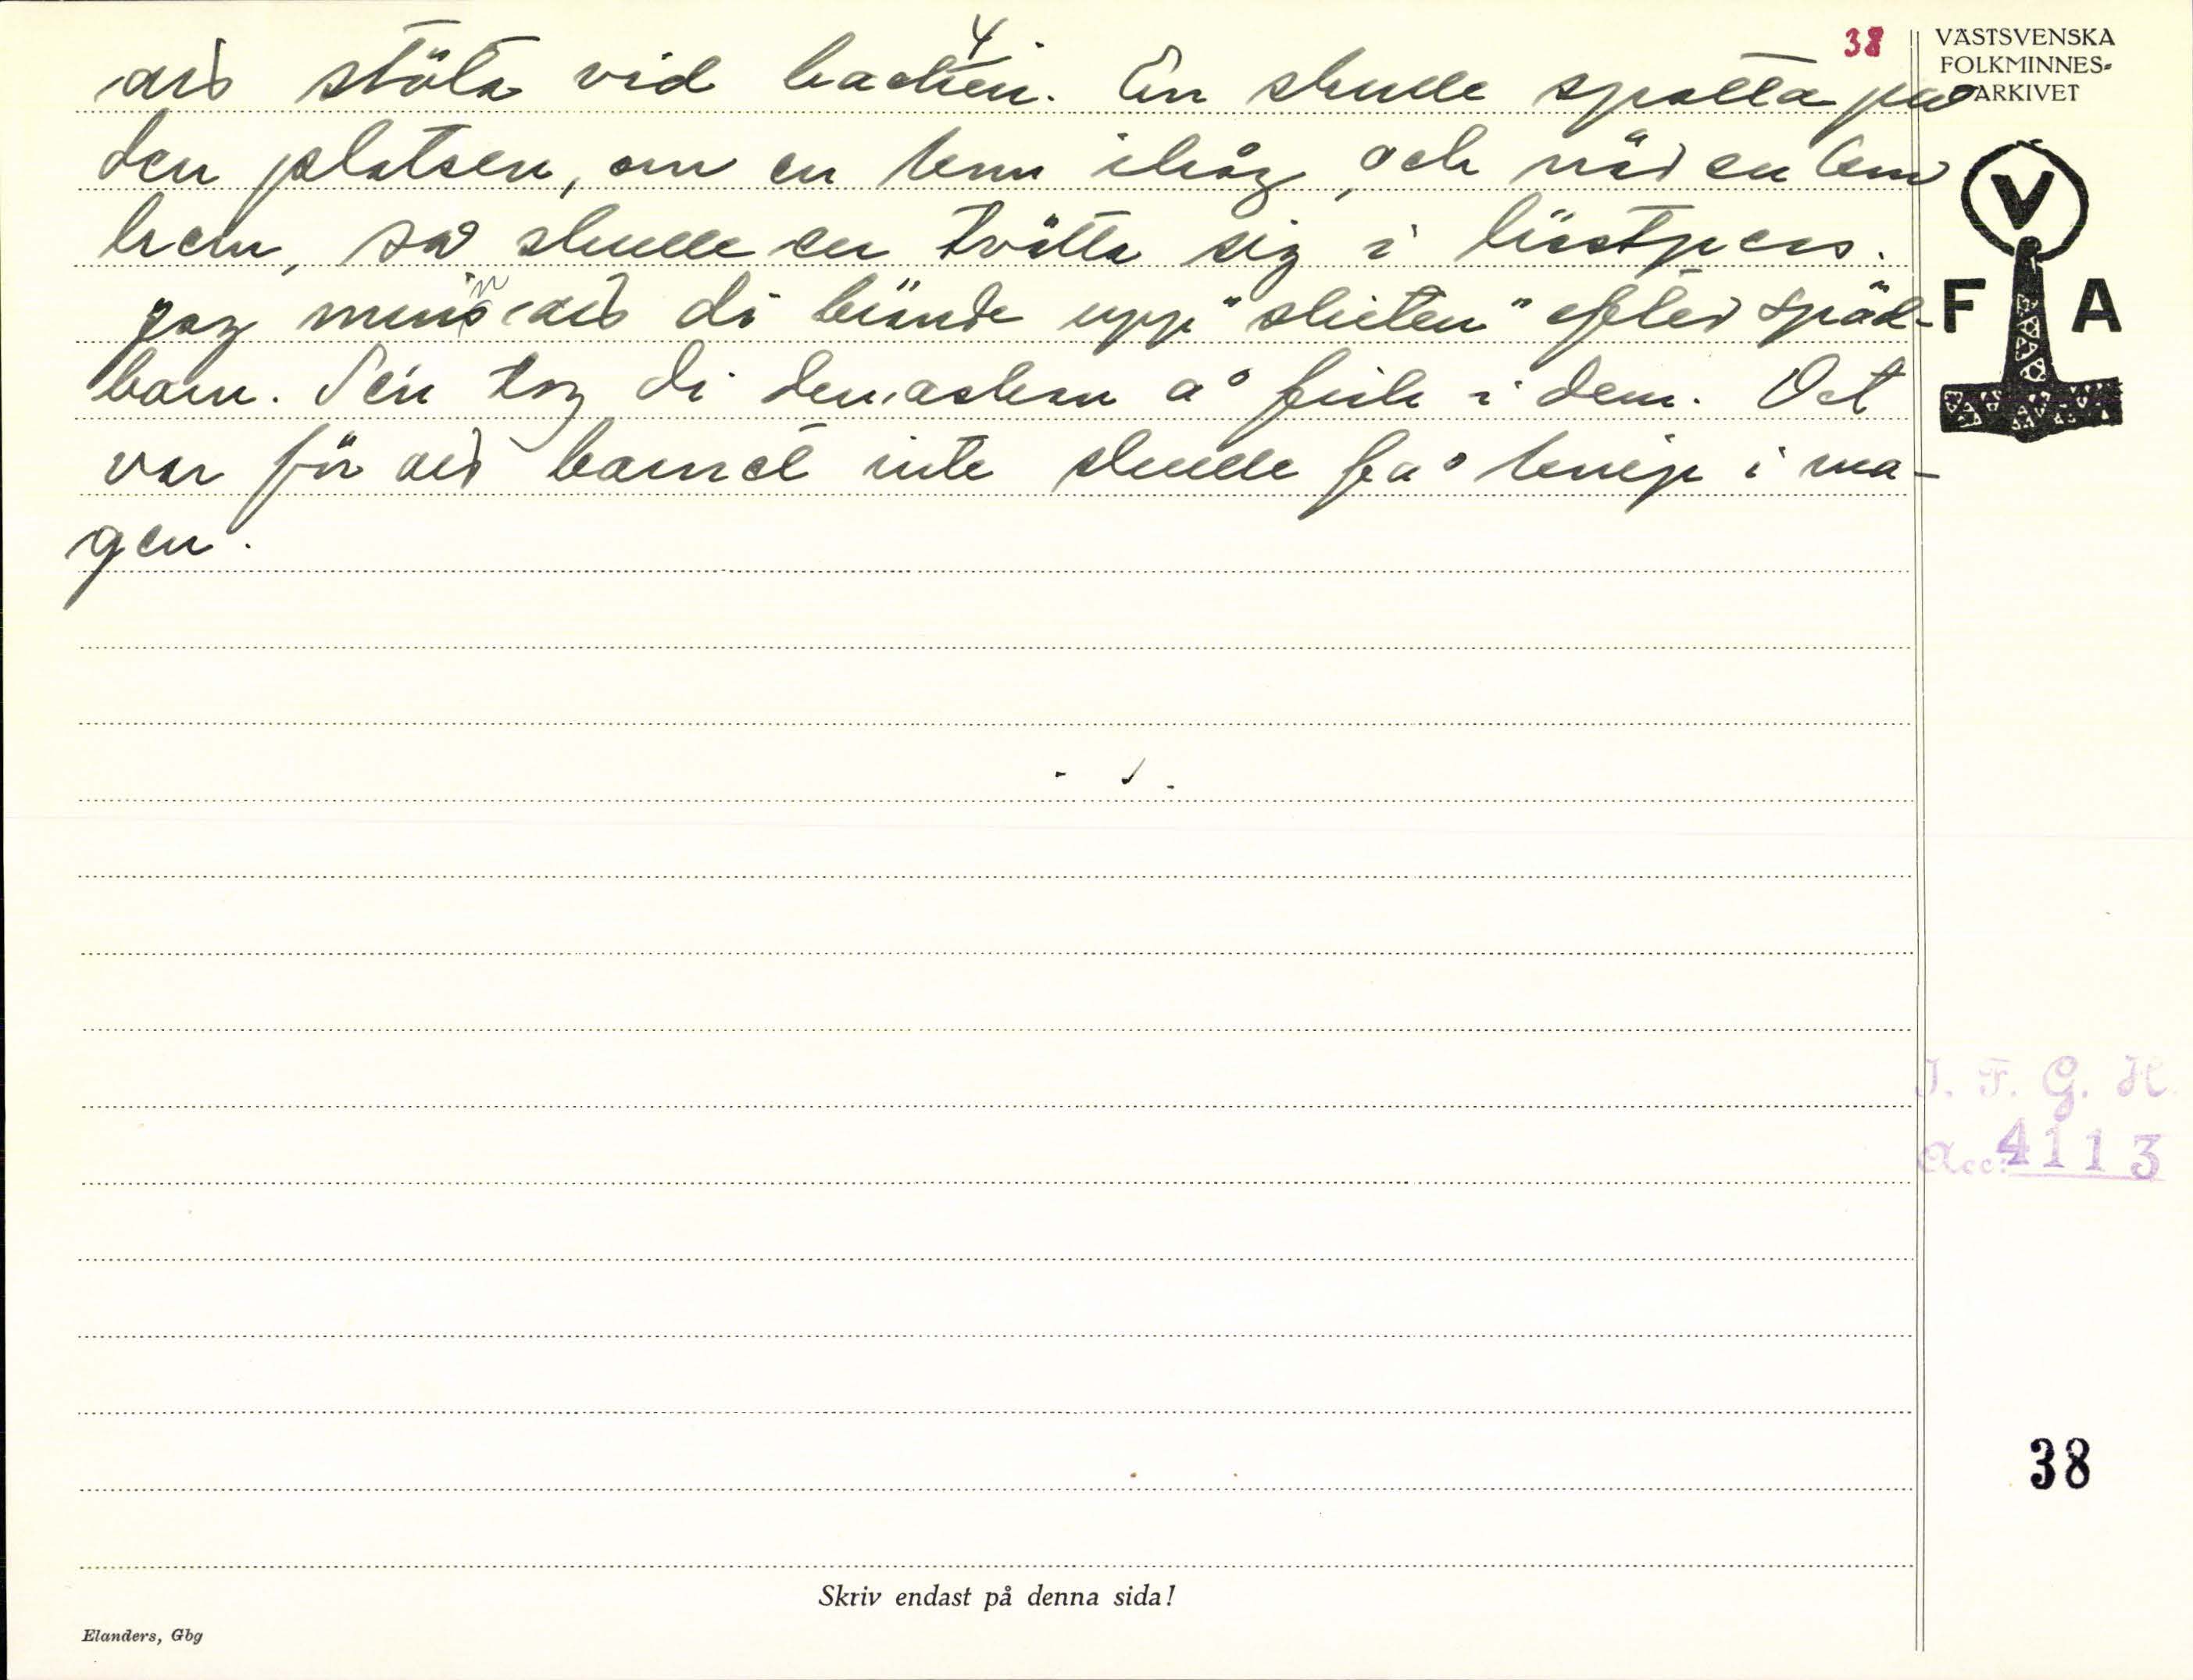 4
38
VÄSTSVENSKA
FOLKMINNES-
ARKIVET
att stöta vid backen. En skulle spotta på
den platsen, om en kom ihåg, och när en kom
hem, så skulle en tvätta sig i
jag minns att di brände upp "skiten" efter späd-
barn. Sen tog di den askan å fick i dem. Det
var för att barnet inte skulle få knip i ma-
gen.
V
F A
I. F. G. H.
Acc: 4113
38
Skriv endast på denna sida!
Elanders, Gbg